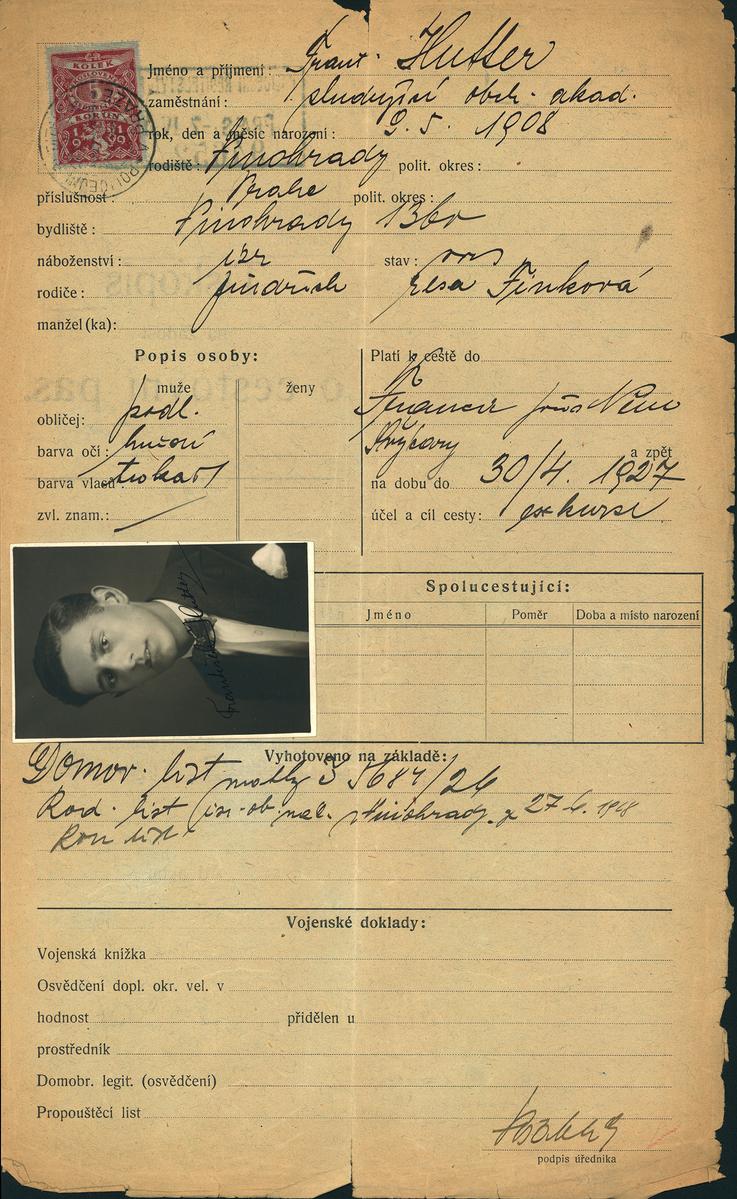 KOLEK
KORUN
Jméno a příjmení: Frant. Hutter
zaměstnání: studující obch. akad.
rok, den a měsíc narození: 9. 5. 1908
rodiště: Vinohrady polit. okres:
příslušnost: Praha polit. okres:
bydliště: Vinohrady 1360
náboženství: izr stav:
rodiče: Jindřich Finková
manžel(ka):
Popis osoby:
muže ženy
obličej: podl.
barva očí:
barva vlasů:
zvl. znam.:
Platí k cestě do
Francie Něm
Švýcary a zpět
na dobu do 30/4. 1927
účel a cíl cesty: exkurse
František Hutter
Spolucestující:
Jméno Poměr Doba a místo narození
Vyhotoveno na základě:
Domov. list 26
Rod. list izr. ob. nál. Vinohrady
Vojenské doklady:
Vojenská knížka
Osvědčení dopl. okr. vel. v
hodnost přidělen u
prostředník
Domobr. legit. (osvědčení)
Propouštěcí list
podpis úředníka